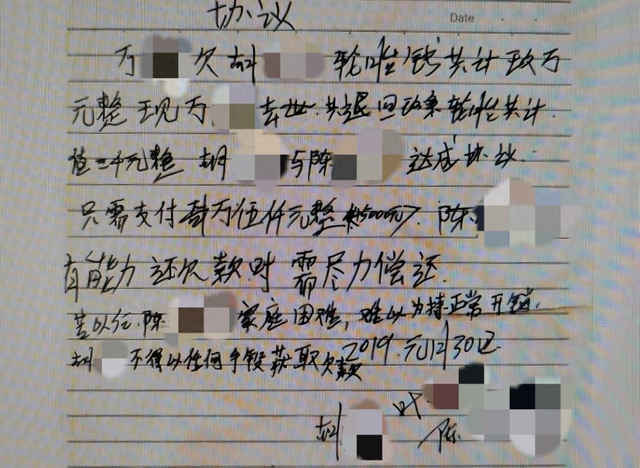 协议
Date
万 欠 胡 轮胎钱共计玖万
元整 现万 去世.共退回 轮胎共计
值三千元整 胡 与陈 达成协议
只需支付 万伍仟元整 陈
有能力还欠款时 需尽力偿还.
若以后.陈 家庭困难,难以为持正常开销.
胡 不得以任何手段获取欠款
2019.元12月30日
胡 叶 陈